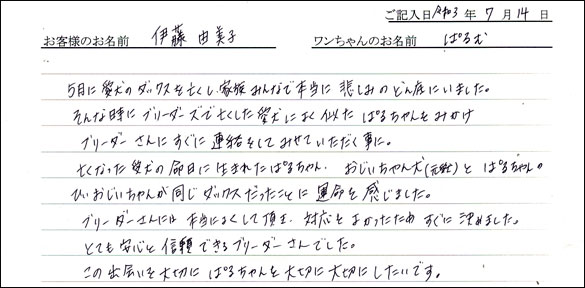 ご記入日 令和3年 7月14日
お客様のお名前 伊藤 由美子 ワンちゃんのお名前 ぱるむ
5月に愛犬のダックスを亡くし、家族みんなで本当に悲しみのどん底にいました。
そんな時にブリーダーズで亡くした愛犬によく似たぱるちゃんをみかけ
ブリーダーさんにすぐに連絡をしてみせていただく事に。
亡くなった愛犬の命日に生まれたぱるちゃん。おじいちゃん犬(元気)とぱるちゃんの
ひいおじいちゃんが同じダックスだったことに運命を感じました。
ブリーダーさんには本当によくして頂き、対応もよかったためすぐに決めました。
とても安心と信頼できるブリーダーさんでした。
この出会いを大切にぱるちゃんを大切に大切にしたいです。